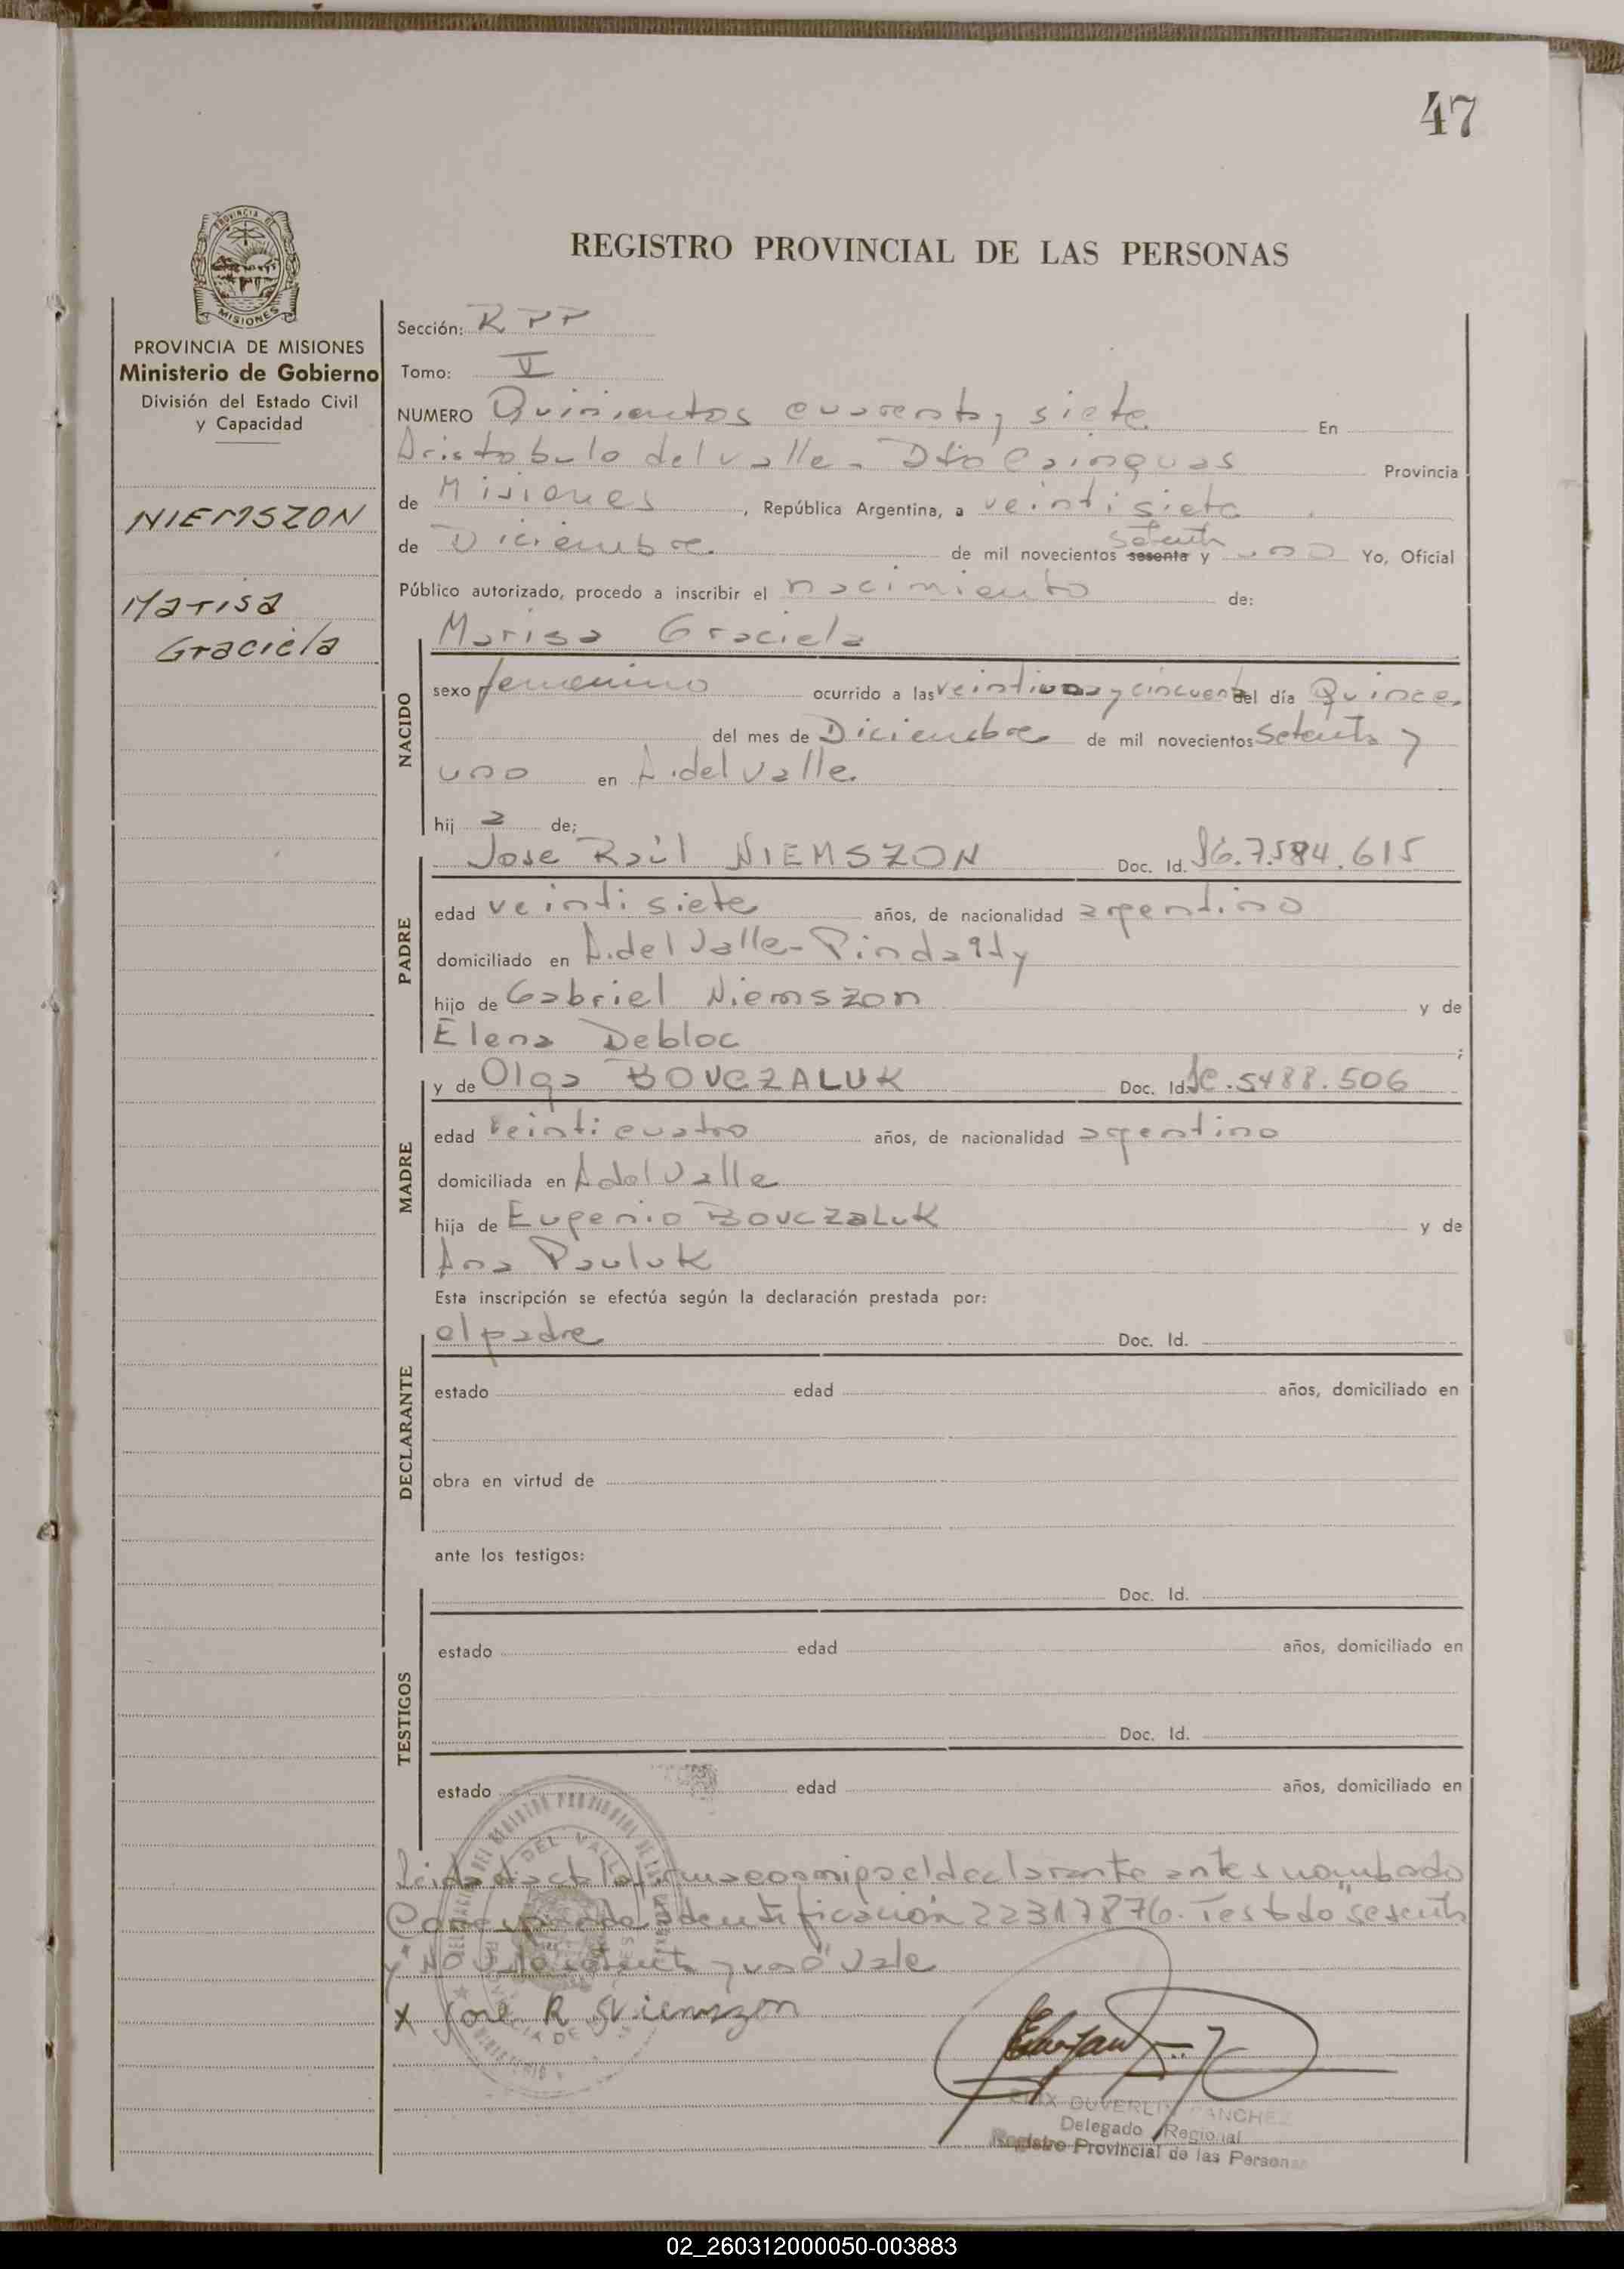 47
PROVINCIA DE
MISIONES
REGISTRO PROVINCIAL DE LAS PERSONAS
PROVINCIA DE MISIONES
Ministerio de Gobierno
División del Estado Civil
y Capacidad
NIEMSZON
Marisa
Graciela
Sección: R P P
Tomo: V
NUMERO Quinientos cuarenta y siete En
Aristobulo del valle - Dto Cainguas Provincia
de Misiones, República Argentina, a veintisiete
de Diciembre de mil novecientos sesenta setenta y uno Yo, Oficial
Público autorizado, procedo a inscribir el nacimiento de:
Marisa Graciela
NACIDO
sexo femenino ocurrido a las y cincuenta del día Quince
del mes de Diciembre de mil novecientos setenta y
uno en A. del valle
hij a de;
PADRE
Jose Raúl NIEMSZON Doc. Id. 7.584.615
edad veintisiete años, de nacionalidad argentino
domiciliado en A. del Valle - Pindayty
hijo de Gabriel Niemszon y de
Elena Debloc ;
MADRE
y de Olga BOUCZALUK Doc. Id. 5488.506
edad veinticuatro años, de nacionalidad argentino
domiciliada en A del Valle
hija de Eugenio BOUCZALUK y de
Ana Pauluk
Esta inscripción se efectúa según la declaración prestada por:
DECLARANTE
el padre Doc. Id.
estado edad años, domiciliado en
obra en virtud de
ante los testigos:
TESTIGOS
Doc. Id.
estado edad años, domiciliado en
Doc. Id.
estado edad años, domiciliado en
Leida el acta la firma conmigo el declarante antes nombrado
identificación 22317876. Testado "sesenta
y" NO vale "setenta y uno" Vale
x Jose R Niemszon
DUVERLI SANCHEZ
Delegado Regional
Registro Provincial de las Personas
02_260312000050-003883